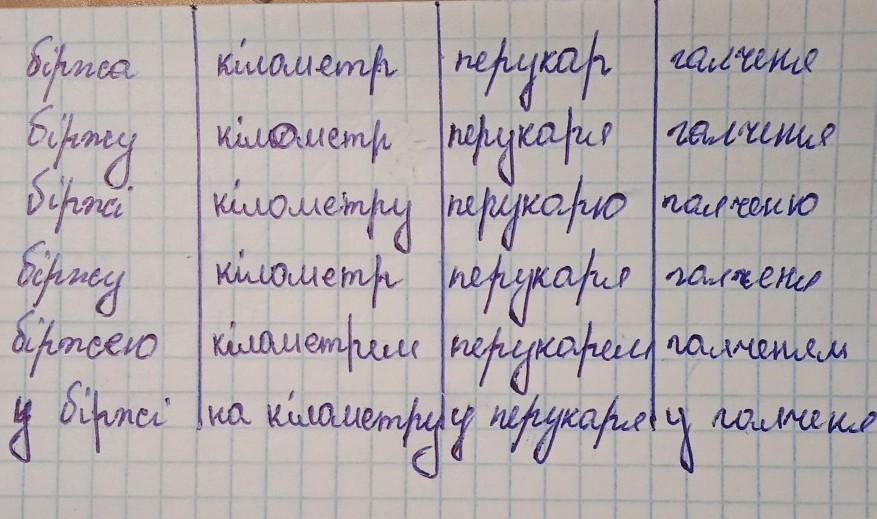 біржа кілометр перукар галченя
біржу кілометр перукаря галченя
біржі кілометру перукарю галченю
біржу кілометр перукаря галченя
біржею кілометрем перукарем галченям
у біржі на кілометру у перукаря у галченя